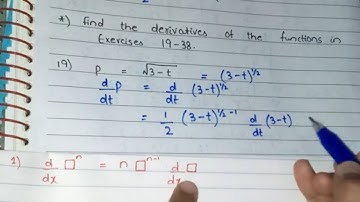 *) find the derivatives of the functions in
Exercises 19-38.
19) P = √3-t = (3-t)^1/2
d/dt P = d/dt (3-t)^1/2
= 1/2 (3-t)^1/2 -1 d/dt (3-t)
1) d/dx □^n = n □^n-1 d/dx □